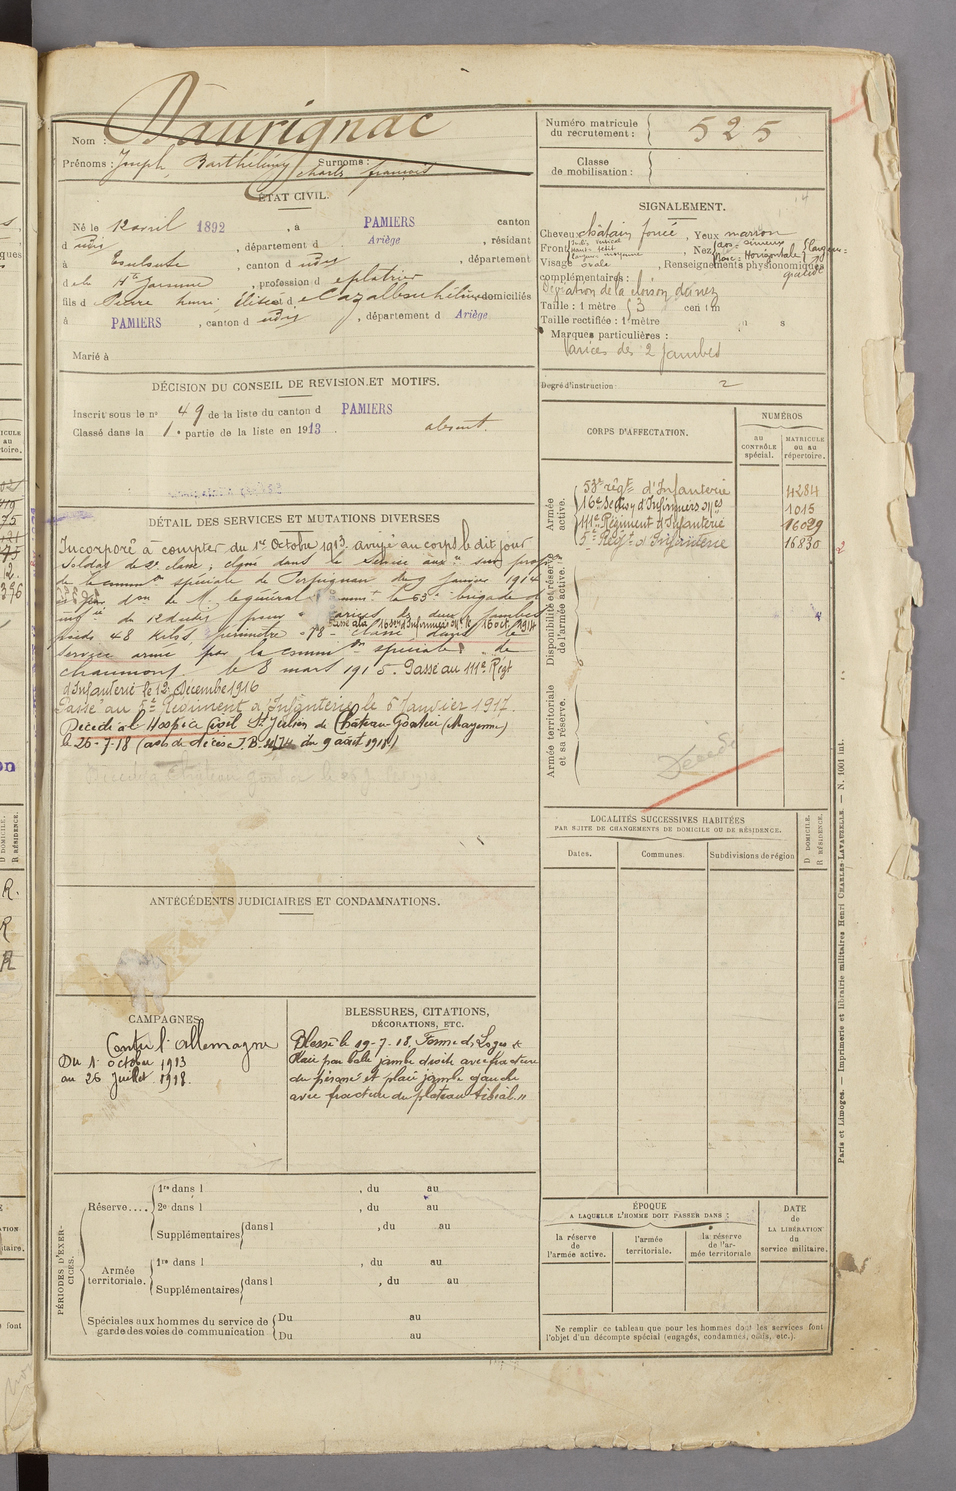 Nom : Daurignac
Numéro matricule du recrutement : 525
Prénoms : Joseph, Barthélémy Surnoms :
Charles François
Classe de mobilisation :
ÉTAT CIVIL.
Né le 12 avril 1892, à PAMIERS canton
d udit, département d Ariège, résidant
à Toulouse, canton d udit, département
d e la Hte Garonne, profession d e platrier
fils d e Pierre henri élisée et d e Cazalbou hélène domiciliés
à PAMIERS, canton d udit, département d Ariège
Marié à
SIGNALEMENT.
Cheveux châtain foncé, Yeux marron
Front
Nez dos = sinueux
Base = Horizontale
Visage ovale, Renseignements physionomiques
complémentaires :
Déviation de la cloison du nez
Taille : 1 mètre 3 centim
Taille rectifiée : 1 mètre
Marques particulières :
Varices des 2 jambes
Degré d'instruction : 2
DÉCISION DU CONSEIL DE REVISION ET MOTIFS.
Inscrit sous le no 49 de la liste du canton d PAMIERS
Classé dans la 1e partie de la liste en 1913 absent.
DÉTAIL DES SERVICES ET MUTATIONS DIVERSES
Incorporé à compter du 1er Octobre 1913. arrivé au corps le dit jour
Soldat de 2e classe; classé dans le service auxre sur propon
de la common spéciale de Perpignan du 9 janvier 1914
de M. le général commt la 63e brigade d'
infie du 12 dudit pour varices des deux jambes
poids 48 kilos, périmètre 78. Passé à la 16 son d'Infirmiers Mres le 16 oct. 1914
classé dans le
service armé par la common spéciale de
chaumont le 8 mars 1915. Passé au 111e Régt
d'Infanterie le 12 Décembre 1916
Passé au 5e Régiment d'Infanterie le 6 Janvier 1917.
Décédé à l'Hospice Civil St Julien de Château-Gontier (Mayenne)
le 26-7-18 (avis de décès J.B. du 9 août 1918)
CORPS D'AFFECTATION.
NUMÉROS
au CONTRÔLE spécial.
MATRICULE ou au répertoire.
Armée active.
53e régt d'Infanterie 4284
16e Section d'Infirmiers Mres 1015
111e Régiment d'Infanterie 16029
5e Régt d'Infanterie 16830
Disponibilité et réserve de l'armée active.
Armée territoriale et sa réserve.
Décédé
LOCALITÉS SUCCESSIVES HABITÉES
PAR SUITE DE CHANGEMENTS DE DOMICILE OU DE RÉSIDENCE.
Dates.
Communes.
Subdivisions de région
D DOMICILE.
R RÉSIDENCE.
ANTÉCÉDENTS JUDICIAIRES ET CONDAMNATIONS.
CAMPAGNES
Contre l'Allemagne
Du 1 octobre 1913
au 26 Juillet 1918.
BLESSURES, CITATIONS,
DÉCORATIONS, ETC.
Blessé le 19-7-18. Ferme de Loges
Plaie par balle jambe droite avec fracture
du péroné et plaie jambe gauche
avec fracture du plateau tibial
PÉRIODES D'EXERCICES.
Réserve....
1re dans l , du au
2e dans l , du au
Supplémentaires dans l , du au
Armée territoriale.
1re dans l , du au
Supplémentaires dans l , du au
Spéciales aux hommes du service de garde des voies de communication
Du au
Du au
ÉPOQUE
A LAQUELLE L'HOMME DOIT PASSER DANS :
la réserve de l'armée active.
l'armée territoriale.
la réserve de l'armée territoriale
DATE de LA LIBÉRATION du service militaire.
Ne remplir ce tableau que pour les hommes dont les services font
l'objet d'un décompte spécial (engagés, condamnés, omis, etc.).
Paris et Limoges. — Imprimerie et librairie militaires Henri CHARLES-LAVAUZELLE. — N. 1001 int.